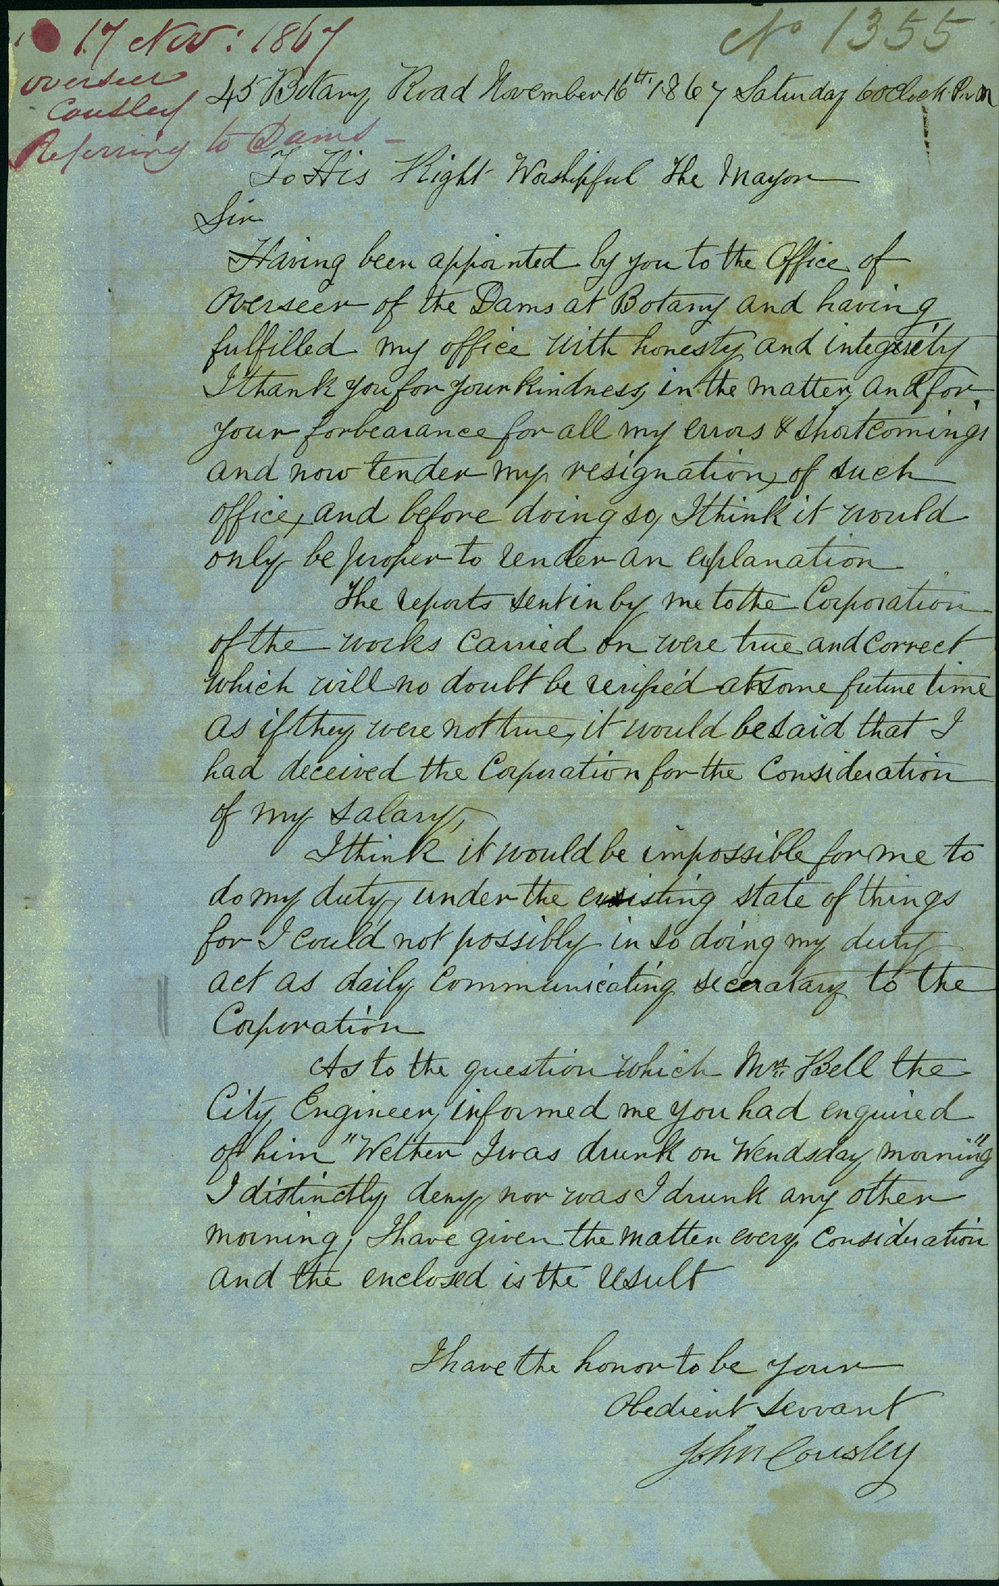 17 Nov: 1867
No 1355
Overseer
Cousley
Referring to Dams -
45 Botany Road November 16th 1867 Saturday 6 oClock P.M
To His Right Worshipful The Mayor
Sir
Having been appointed by you to the Office of
Overseer of the Dams at Botany and having
fulfilled my office with honesty and integrety
I thank you for your kindness, in the matter, and for
your forbearance for all my errors & shortcomings
and now tender my resignation, of such
office, and before doing so, I think it would
only be proper to render an explanation
The reports sent in by me to the Corporation
of the works carried on were true and correct
which will no doubt be verified at some future time
as if they were not true, it would be said that I
had deceived the Corporation for the Consideration
of my salary,
I think it would be impossible for me to
do my duty, under the existing state of things
for I could not possibly in so doing my duty
act as daily communicating secratary to the
Corporation
As to the question which Mr. Bell the
City Engineer, informed me you had enquired
of him "Wether I was drunk on Wendsday morning"
I distinctly deny, nor was I drunk any other
morning, I have given the matter every Consideration
and the enclosed is the result
I have the honor to be your
Obedient servant
John Cousley